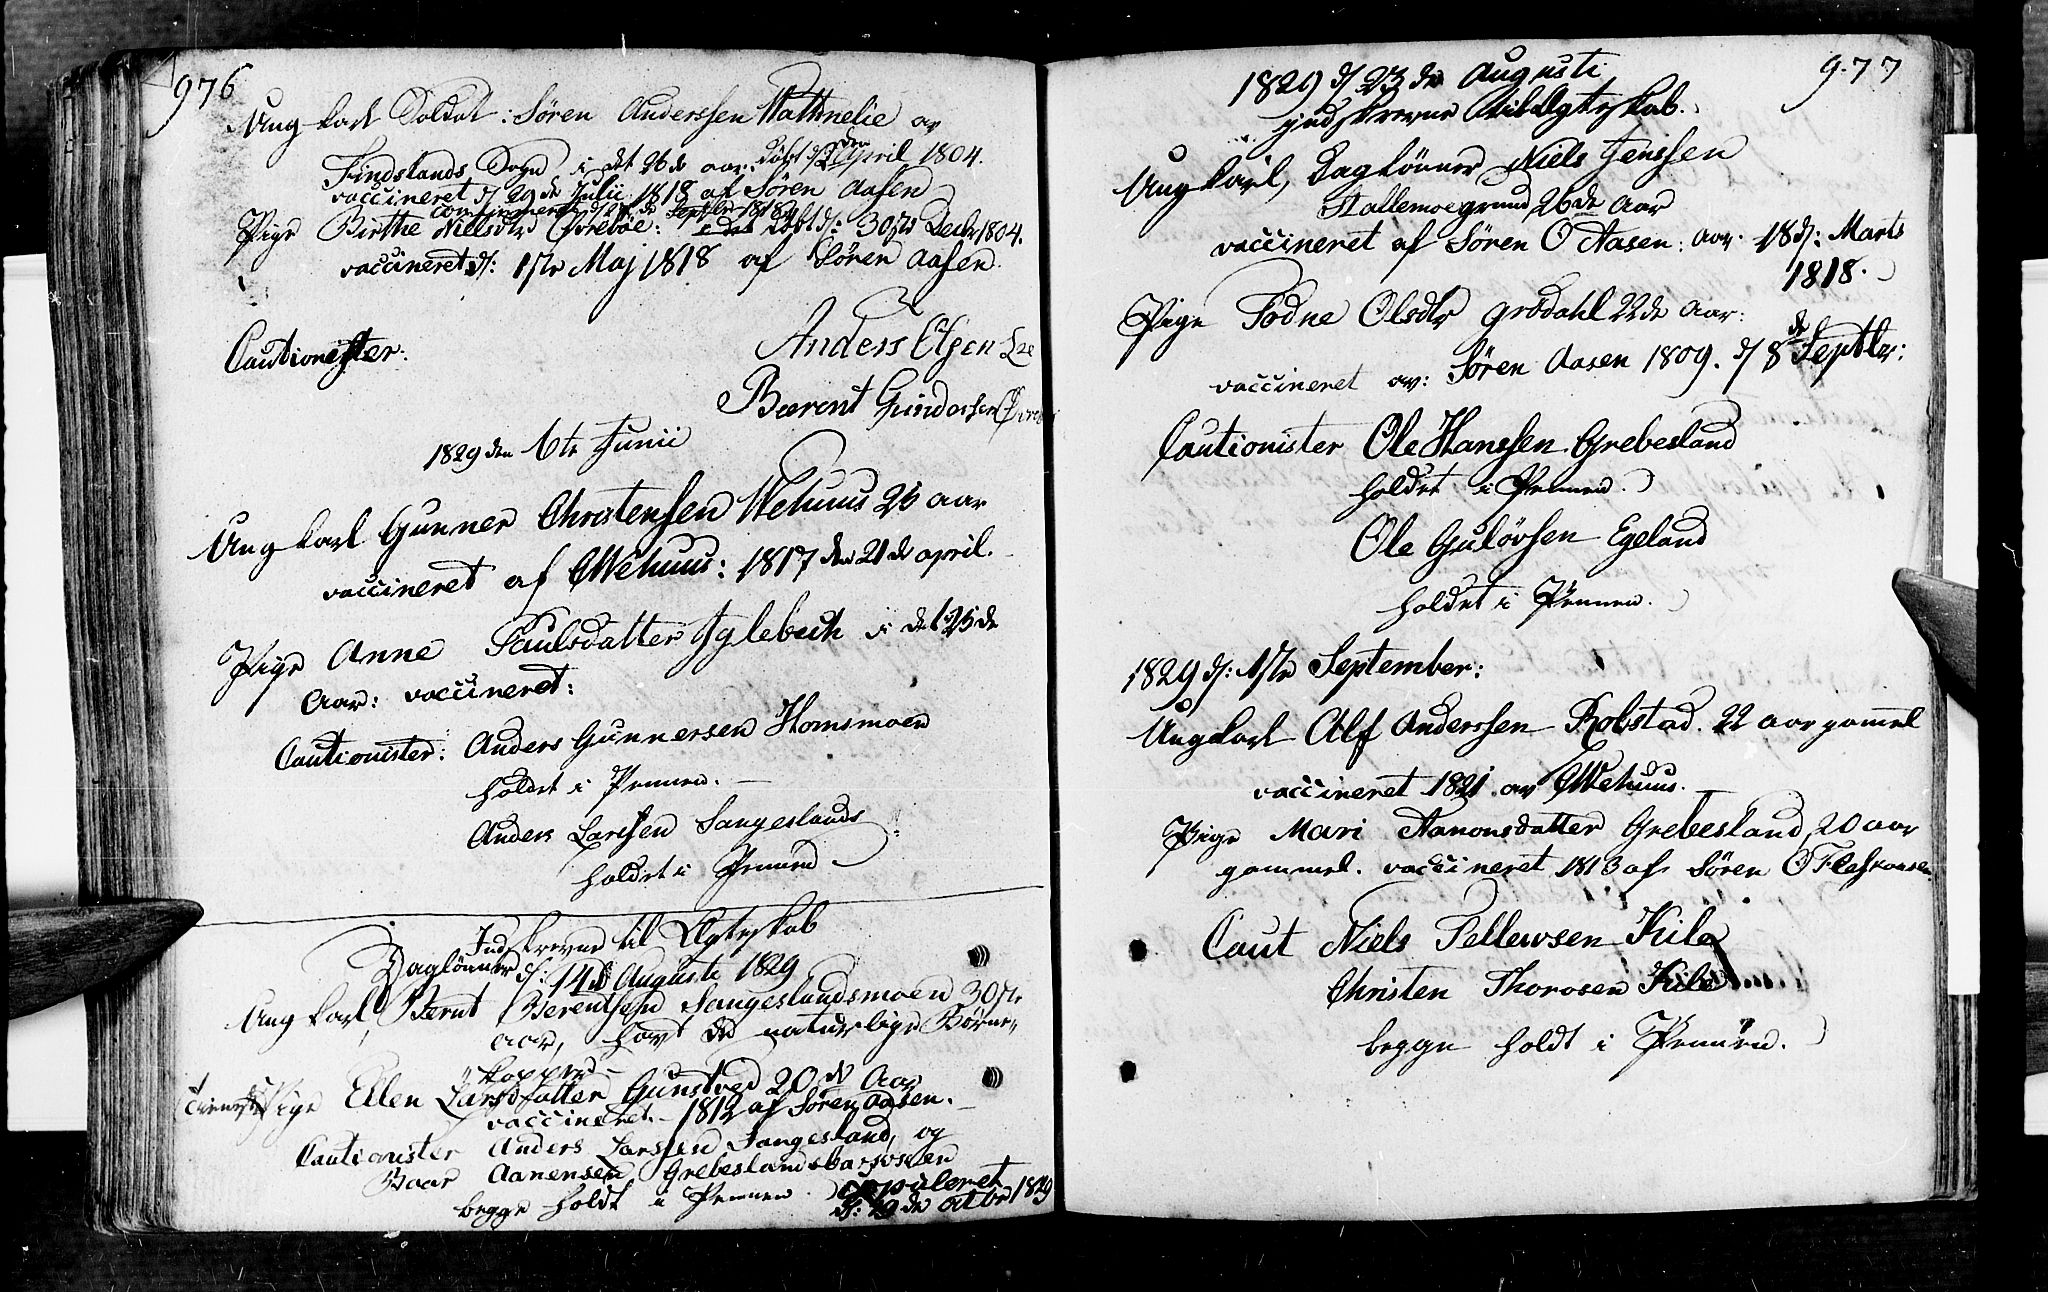 976
Ung Karl Soldat: Sören Anderssen Wathnelie av
Findslands Sogn i det 26de aar. döbt d/2den April 1804.
vaccineret d/ 29de Julii 1818 af Sören Aasen
confirmeret Septbr 1818
Pige Birthe Nielsdtr Övreböe: döbt d/: 30te Decbr 1804.
vaccineret d/: 1ste Maj 1818 af Sören Aasen.
Cautionister:
Anders Olsen
Bærent Gundersen
1829 den 6te Junii
Ung Karl Gunner Christensen Wehuus 26 aar
vaccineret af CWehuus: 1817 den 21de april.
Pige Anne Paulsdatter Iglebech i det 25de
Aar: vaccineret:
Cautionister: Anders Gunnersen Homsmoen
holdet i Pennen. —
Anders Larssen Sangeslands
holdet i Pennen
Indskrevne til Ægteskab
d/: 14d Augusti 1829
Daglönner
Ung Karl, Bernt Berentsen Sangeslandsmoen 30te
aar, havt de naturlige Börne-
kopper
Tieneste Pige Ellen Larsdatter Gunstved 20de Aar
vaccineret. 1812 af Sören Aasen.
Cautionister Anders Larssen Sangesland, og
Baar Aanensen Grebeslands
begge holdt i Pennen. Copuleret
d: 29de octbr 1829
977
1829 d/ 23de Augusti
indskrevne til Ægteskab.
Ungkarl, Daglönner Niels Jenssen
Stallemoegrund 26de Aar
vaccineret af Sören O Aasen: aar. 18d/: Marts
1818.
Pige Todne Olsdtr Grödahl 22de Aar:
vaccineret av: Sören Aasen 1809. d/ 8de Septbr:
Cautionister Ole Hanssen Grebesland
holdet i Pennen.
Ole Gulövsen Egeland
holdet i Pennen.
1829 d/: 1ste September:
Ungkarl Alf Anderssen Robstad. 22 aar gammel
vaccineret 1821 av CWehuus.
Pige Mari Aanonsdatter Grebesland, 20 aar
gammel. vaccineret 1813 af Sören O
Caut Niels Tellewsen Kile
Christen Thorosen Kile
begge holdt i Pennen.